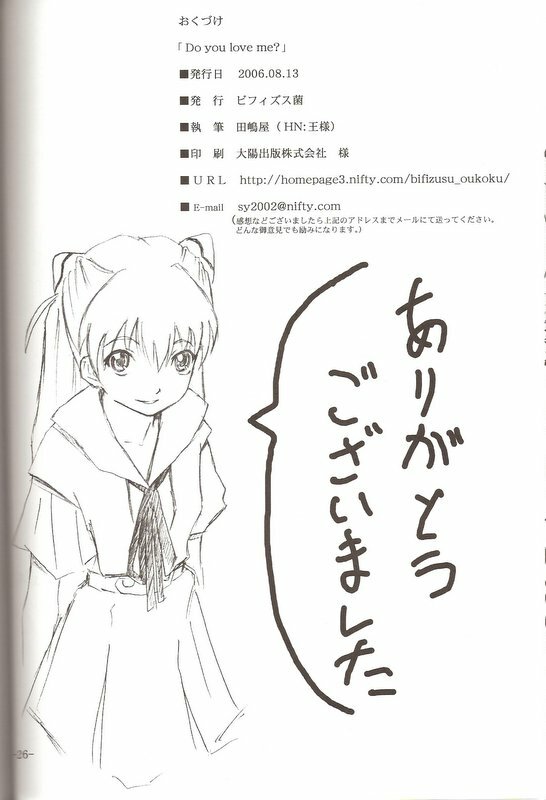 おくづけ
「Do you love me?」
■発行日　2006.08.13
■発　行　ビフィズス菌
■執　筆　田嶋屋（HN:王様）
■印　刷　大陽出版株式会社　様
■ＵＲＬ　http://homepage3.nifty.com/bifizusu_oukoku/
■E-mail　sy2002@nifty.com
（感想などございましたら上記のアドレスまでメールにて送ってください。
どんな御意見でも励みになります。）
ありがとう
ございました
-26-